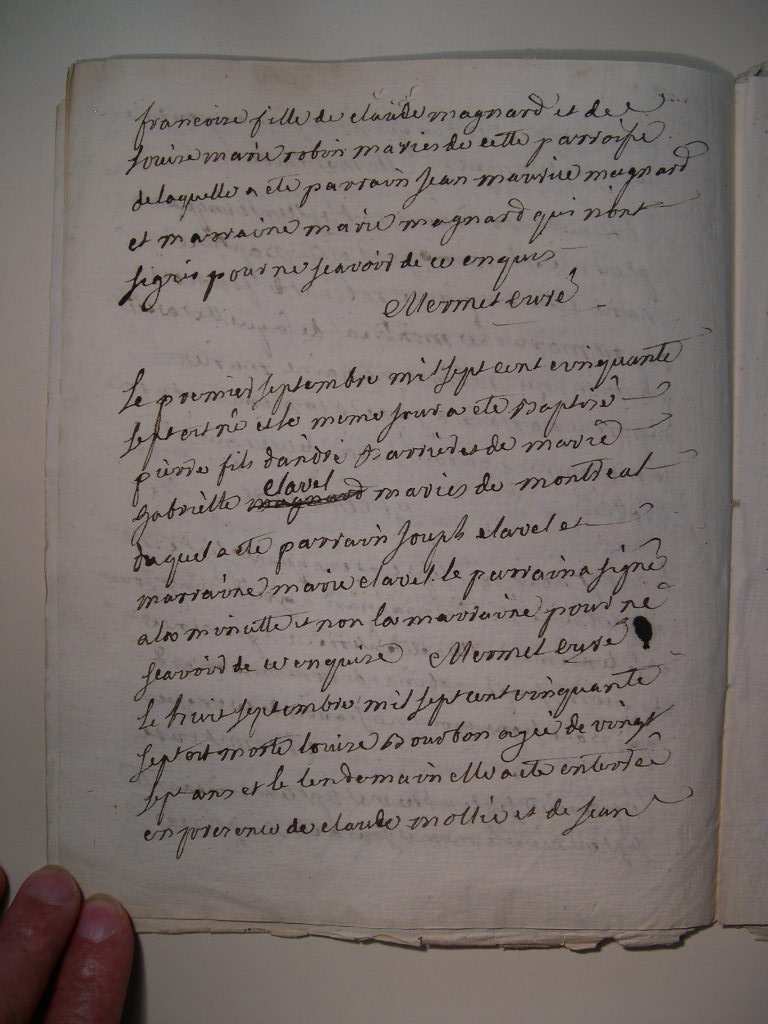 francoise fille de claude magnard et de
Louise marie robin mariés de cette parroisse
delaquelle a ete parrain jean maurice magnard
et marraine marie magnard qui n'ont
signés pour ne scavoir de ce enquis
Mermet curé
Le premier septembre mil sept cent cinquante
sept est né et le meme jour a ete Baptisé
pierre fils d'andré Barrier et de marie
gabrielle clavel mariés de montreal
duquel a ete parrain joseph clavel et
marraine marie clavel. le parrain a signé
a la minutte et non la marraine pour ne
scavoir de ce enquise Mermet curé
Le huit septembre mil sept cent cinquante
sept est morte louise Bourbon agée de vingt
sept ans et le lendemain elle a ete enterrée
en presence de claude mollie et de jean